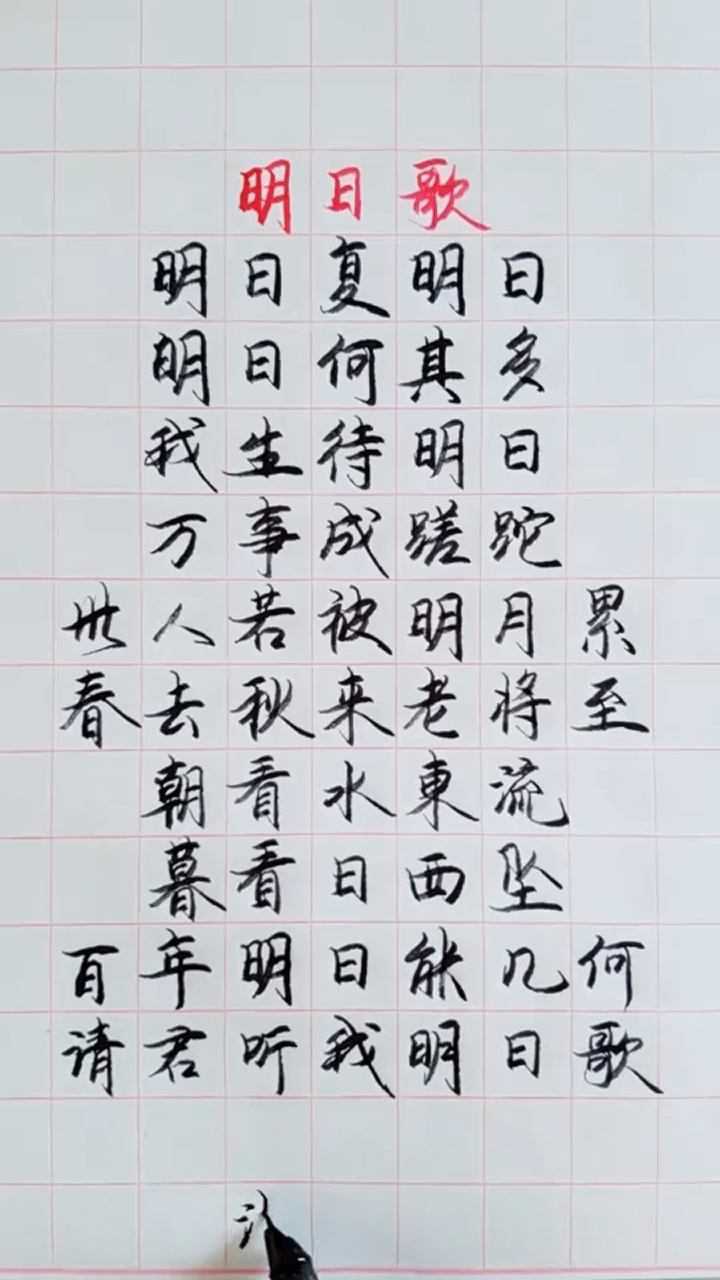 明日歌
明日复明日
明日何其多
我生待明日
万事成蹉跎
世人若被明月累
春去秋来老将至
朝看水東流
暮看日西坠
百年明日能几何
请君听我明日歌